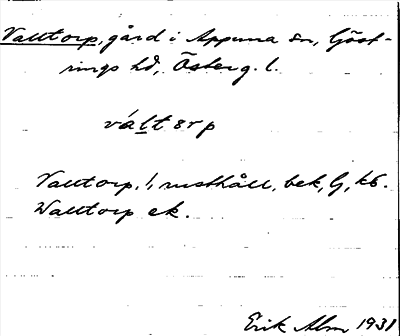 Valltorp, gård i Appuna sn, Göst-
rings hd, Österg. l.
váltɛrp
Valltorp, 1/1 rusthåll, bek, G, kb.
Walltorp ek.
Erik Alm 1931